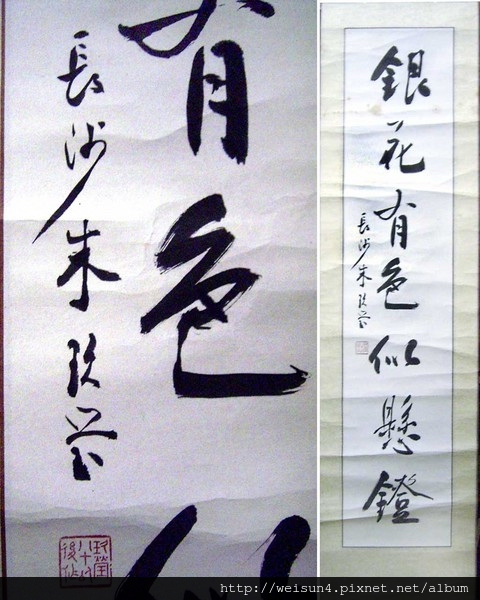 有色似
長沙朱玖瑩
玖瑩八十後作
銀花有色似懸鐙
長沙朱玖瑩
http://weisun4.pixnet.net/album